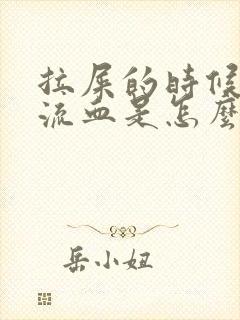 拉屎的時候
流血是怎麼
岳小妞